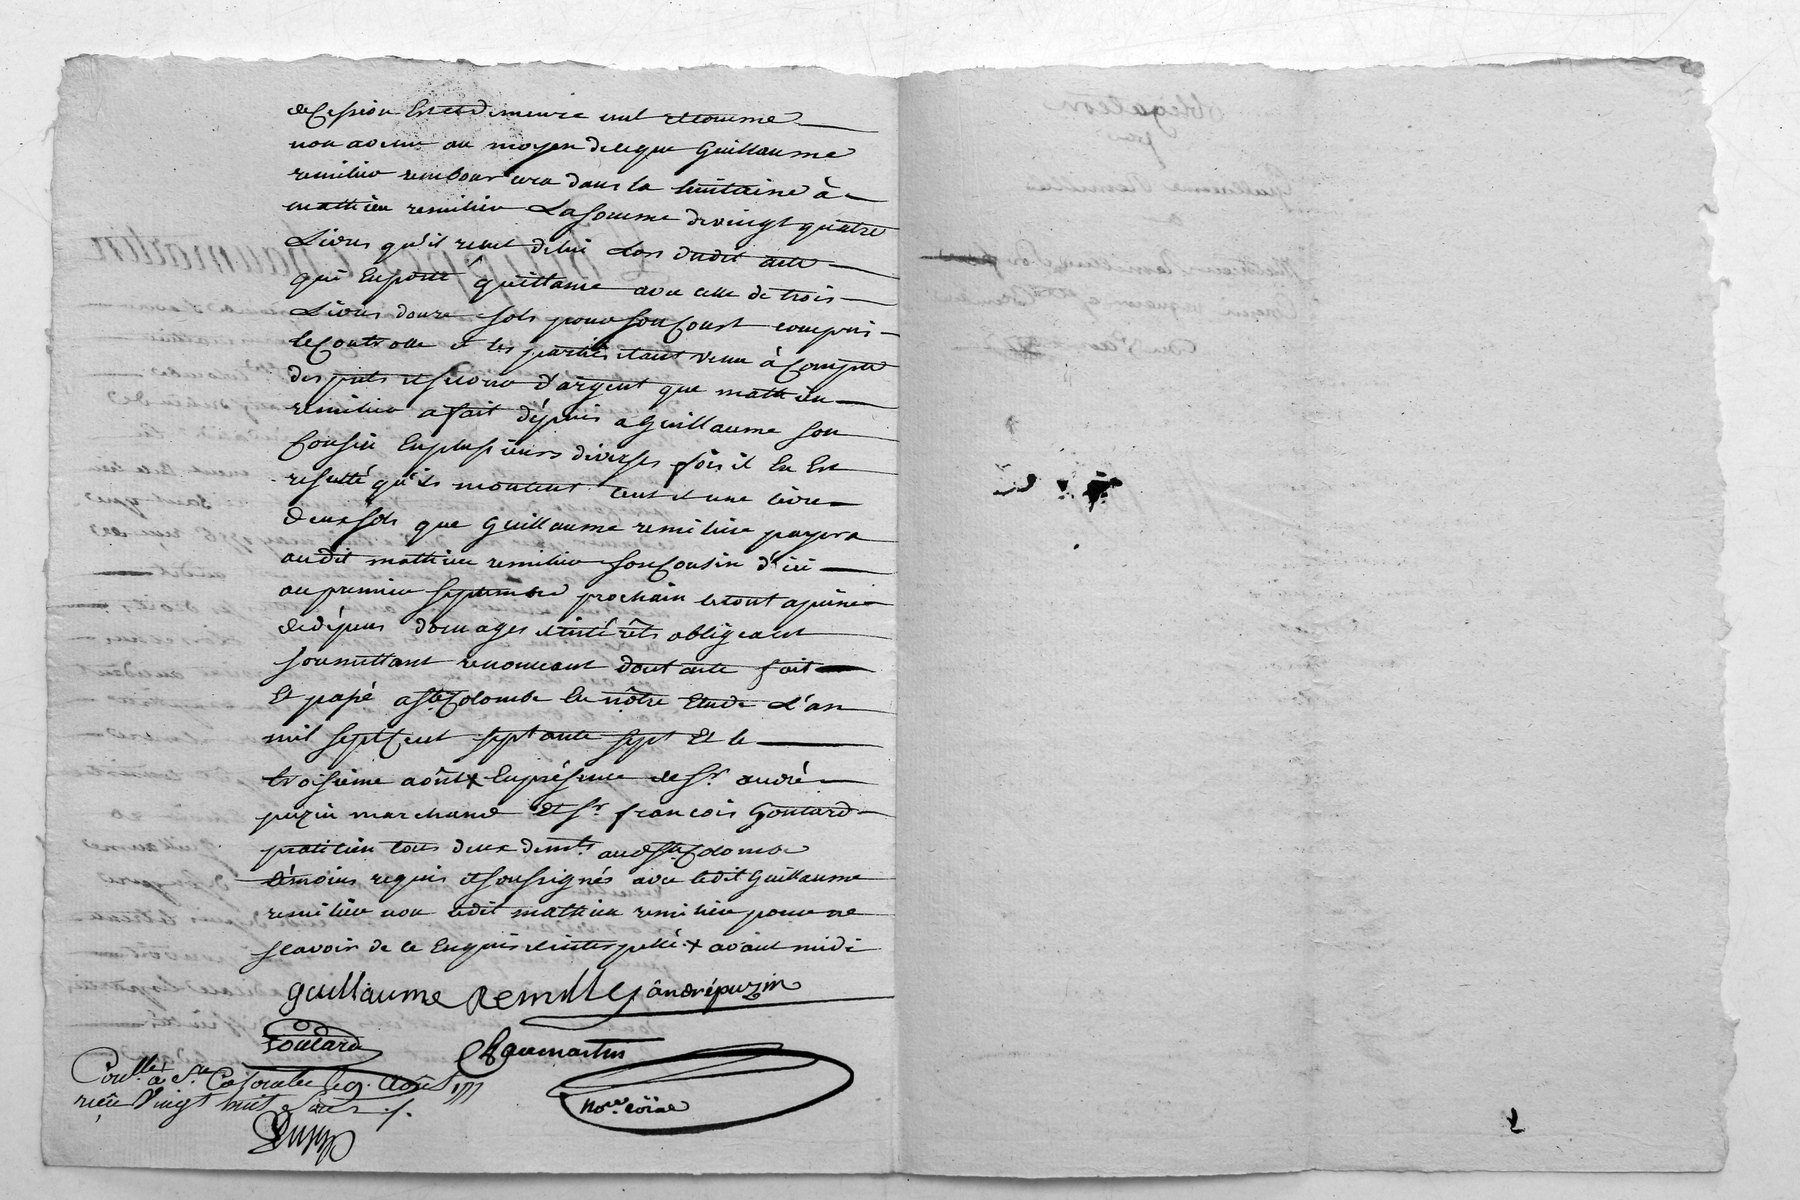 de Cession Est et demeure nul et comme
non avenu au moyen de ce que Guillaume
remilier remboursera dans la huitaine à
mathieu remilier La somme de vingt quatre
Livres qu'il reçut de lui Lors dudit acte
qui Emporte quittance avec celle de trois
Livres douze sols pour son Coust compris
le Controlle et les parties étant venu à Compte
des prets et fourns d'argent que mathieu
remilier a fait dépuis a Guillaume son
Cousin En plusieurs diverses fois il En Est
resulté qu'ils montent cent et une livre
deux sols que Guillaume remilier payera
audit mathieu remilier son Cousin d'ici
au premier septembre prochain le tout a peine
de dépens domages et intérêts obligeant
soumettant renonceant dont acte fait
Et passé a Ste Colombe En nôtre Etude L'an
mil sept Cent septante sept Et le
troisieme août + En présence de Sr. andré
puzin marchand et Sr. françois Goutard
praticien tous deux demts. aud. Ste Colombe
témoins requis et soussignés avec ledit Guillaume
remilier non ledit mathieu remilier pour ne
scavoir de ce Enquis et interpellé + avant midi
guillaume Remilly andré puzin
Goutard Chaumartin
Conllé à Ste Colombe le 9. Août 1777
reçu Vingt huit sous
nore. roïal